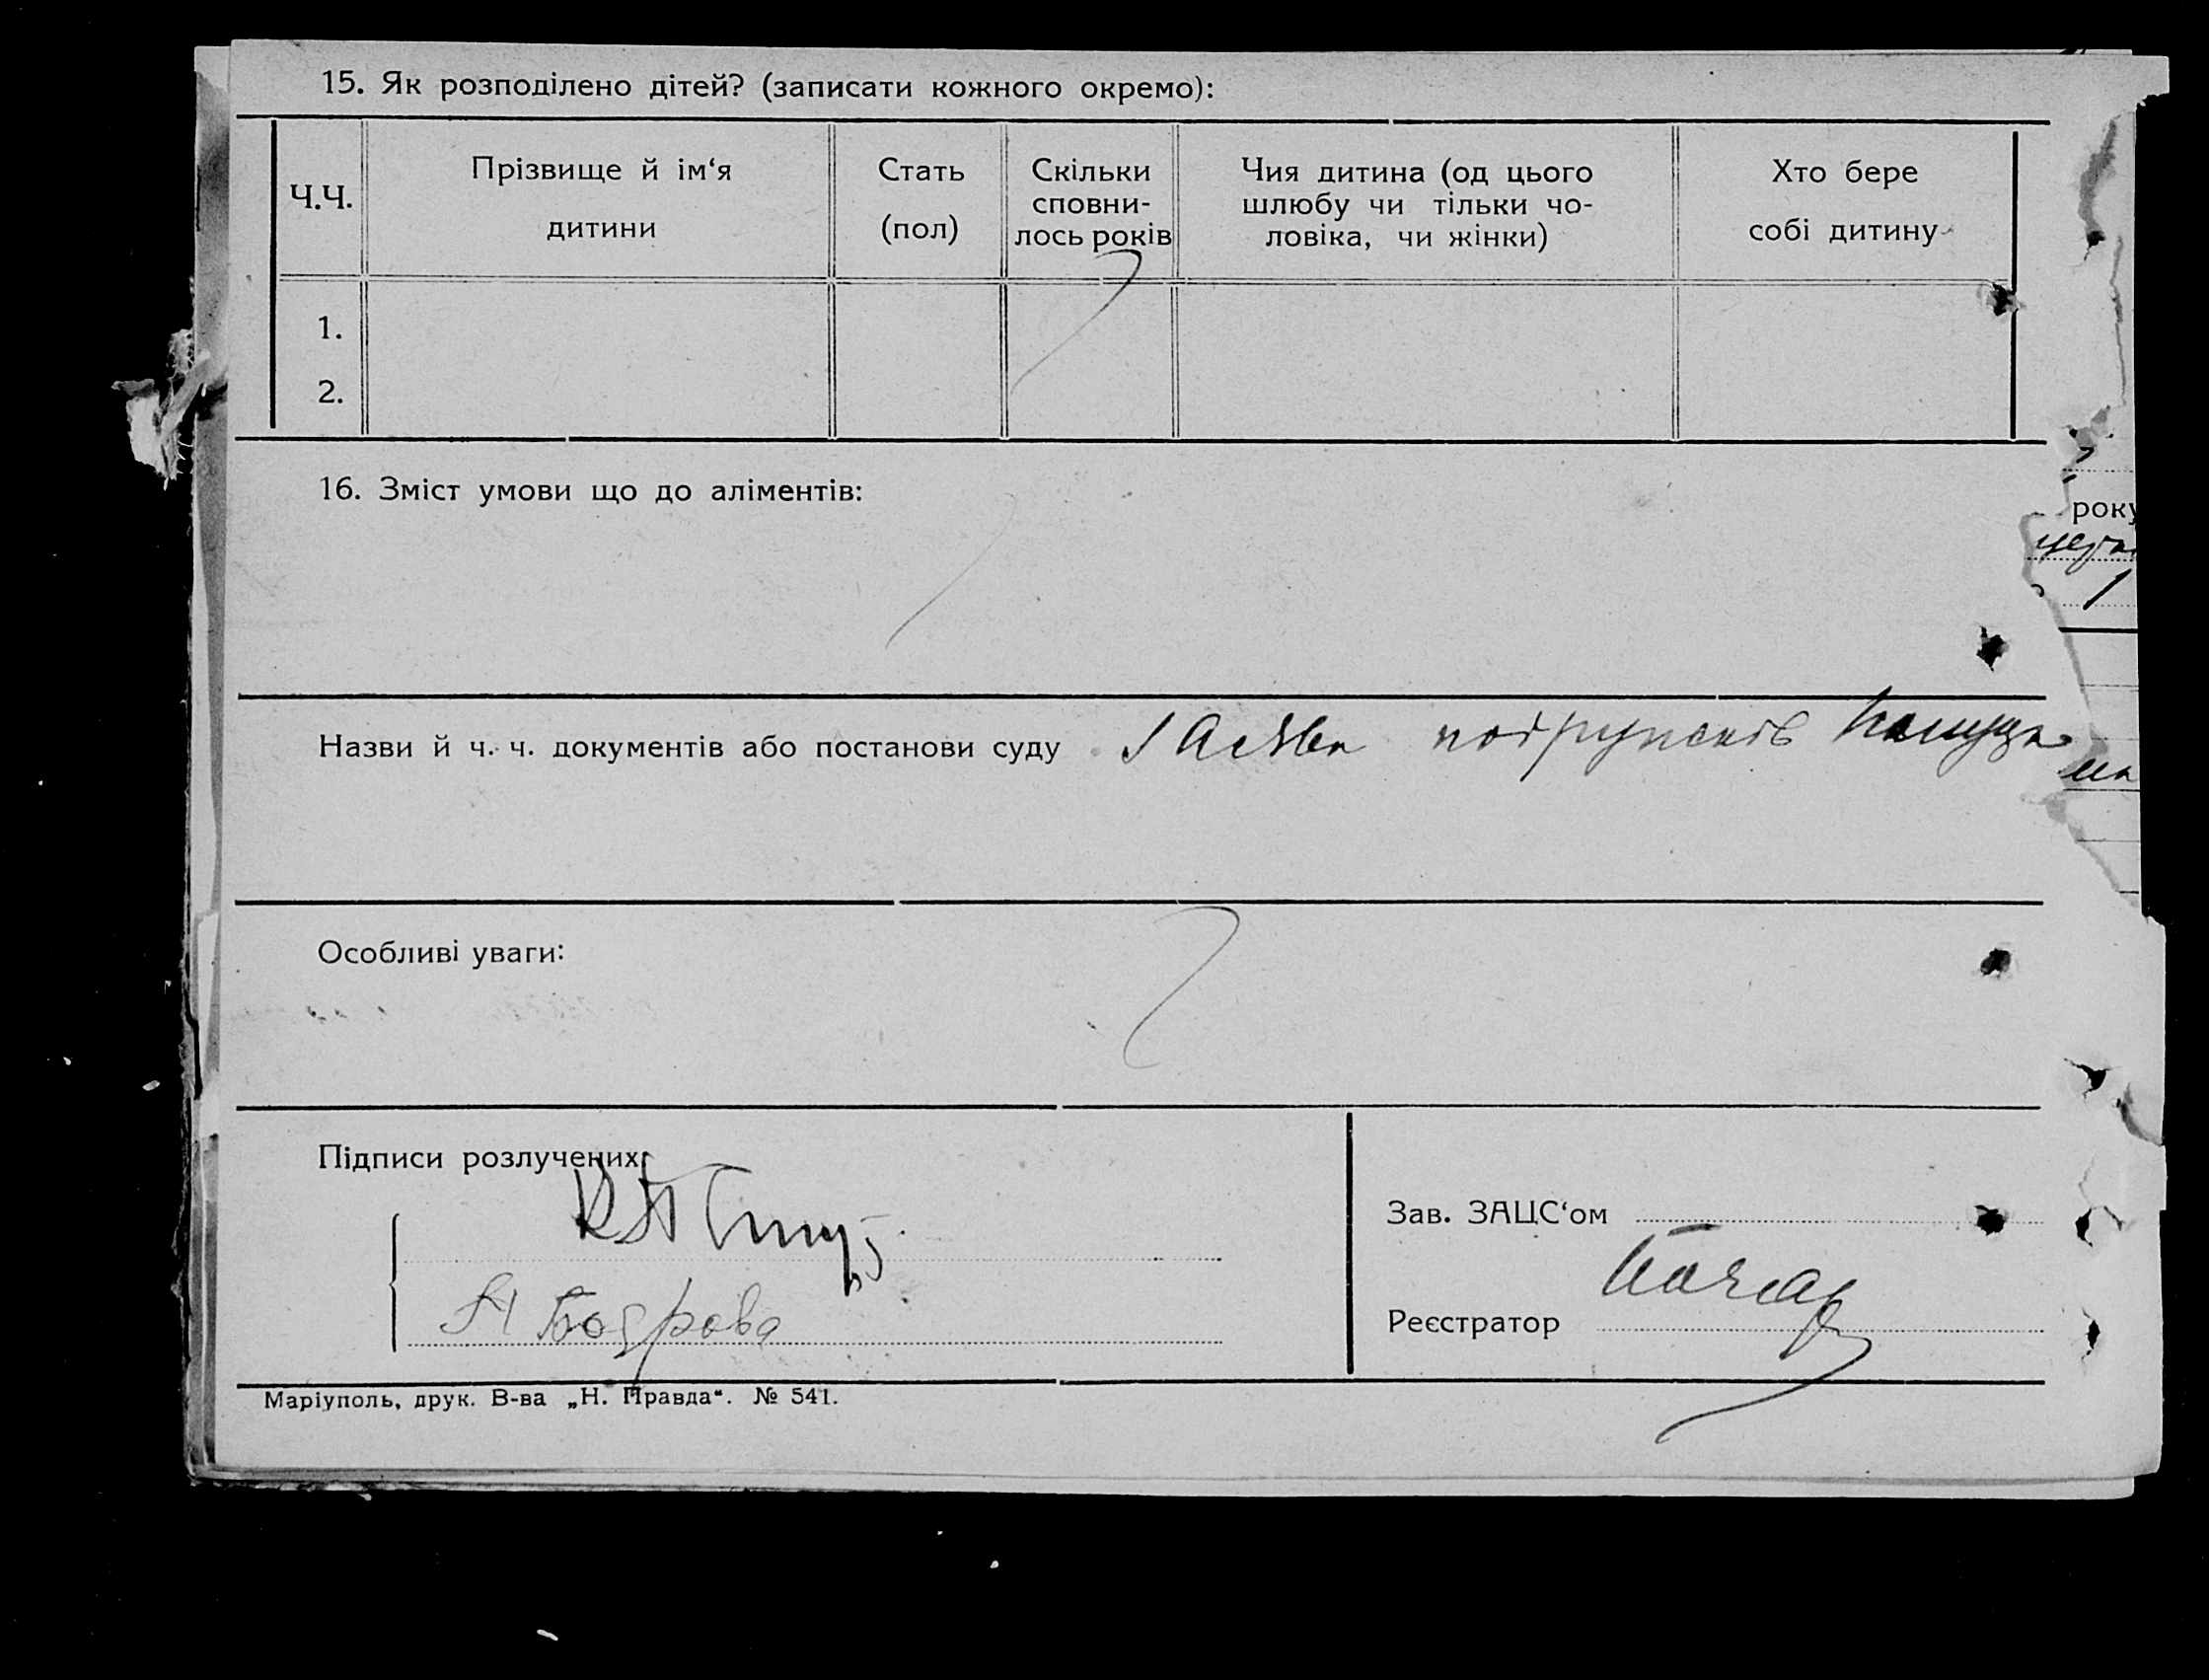 15. Як розподілено дітей? (записати кожного окремо):
Ч.Ч.
Прізвище й ім‘я
дитини
Стать
(пол)
Скільки
сповни-
лось років
Чия дитина (од цього
шлюбу чи тільки чо-
ловіка, чи жінки)
Хто бере
собі дитину
1.
2.
16. Зміст умови що до аліментів:
року
1
Назви й ч. ч. документів або постанови суду Заява подружжів
Особливі уваги:
Підписи розлучених:
Н Бодрова
Зав. ЗАЦС‘ом
Реєстратор
Маріуполь, друк. В-ва „Н. Правда“. № 541.